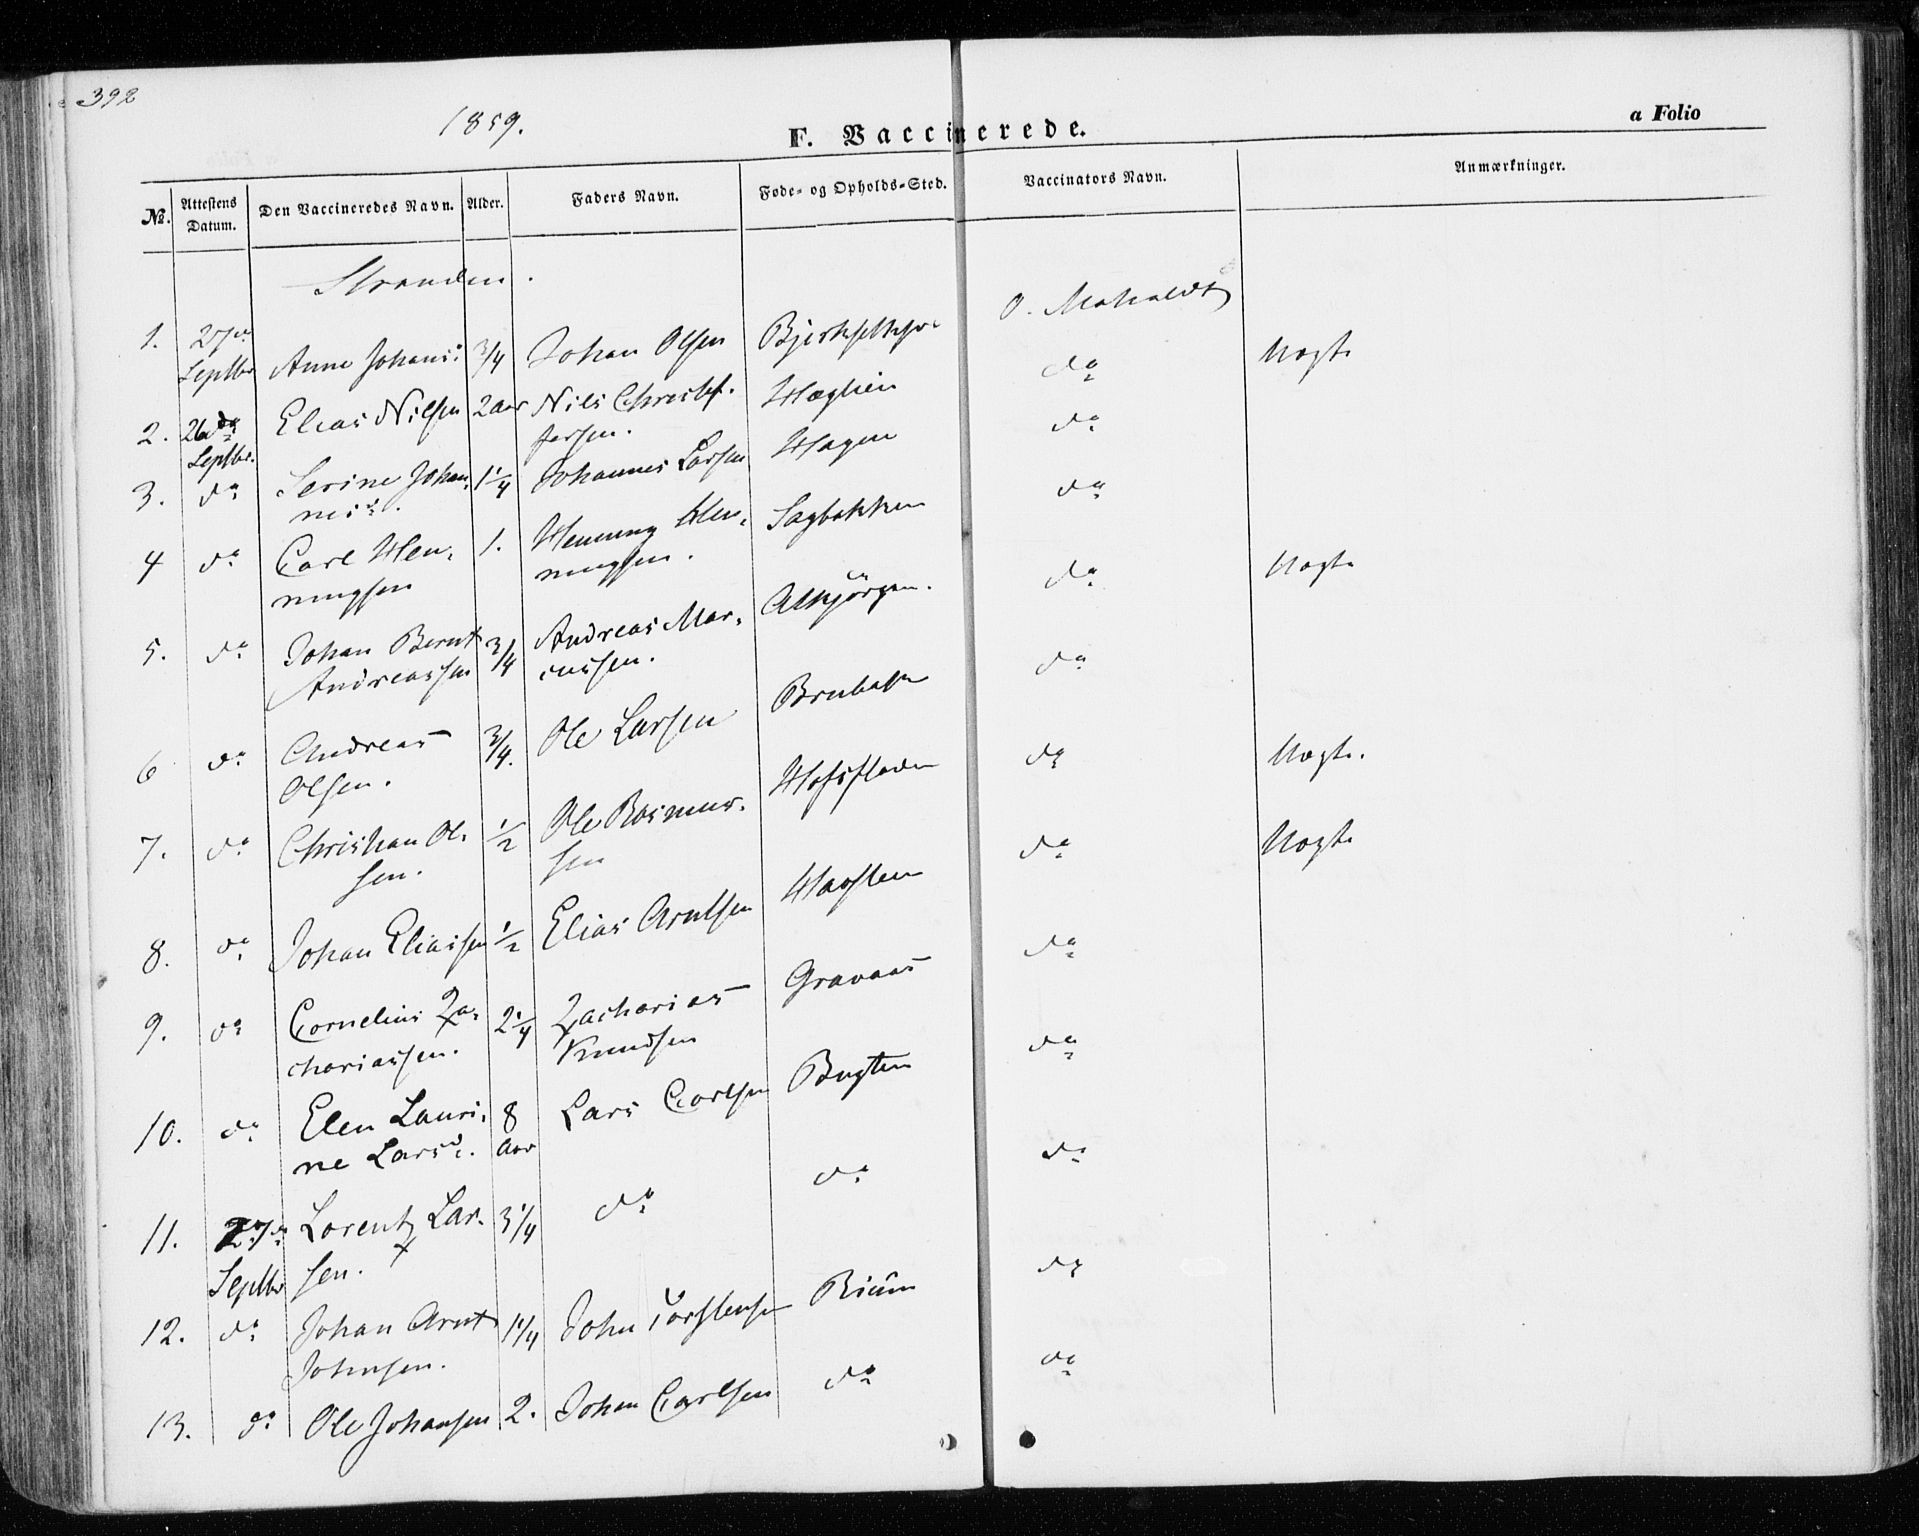 392
1859.
F. Vaccinerede.
a Folio
No. Attestens Datum. Den Vaccineredes Navn. Alder. Faders Navn. Føde- og Opholds-Sted. Vaccinators Navn. Anmærkninger.
Stranden.
1. 27de Septbr Anne Johansd: 3/4 Johan Olsen O.
2. 26de Septbr. Elias Nilsen 2 aar Nils Christof- do
fersen.
3. do Serine Johan- 1 1/4 Johannes Larsen Hagen do
nesd.
4 do Carl Hen- 1. Henning Hen- Sagbakken do
ningsen ningsen.
5. do Johan Bernt 3/4 Andreas Mar- do
Andreassen iussen.
6 do Andreas 3/4. Ole Larsen do
Olsen.
7. do Christian Ol- 1/2 Ole Rasmus- do
sen. sen
8. do Johan Eliassen 1/2 Elias Arntsen do
9. do Cornelius Za- 2 1/4 Zacharias Gravaas do
chariassen. Knudsen
10. do Elen Lauri- 8 Lars Carlsen Bugten do
ne Larsd. Aar
11. 27de Lorentz Lar- 3 1/4 do do do
Septbr sen.
12. do Johan Arnt 1 1/4 John Torstensen do
Johnsen.
13. do Ole Johansen 2. Johan Carlsen do do